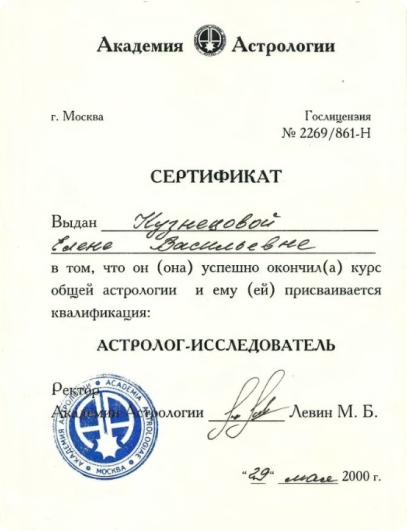 Академия Астрологии
г. Москва
Гослицензия
№ 2269/861-Н
СЕРТИФИКАТ
Выдан Кузнецовой
Елене Васильевне
в том, что он (она) успешно окончил(а) курс
общей астрологии и ему (ей) присваивается
квалификация:
АСТРОЛОГ-ИССЛЕДОВАТЕЛЬ
Ректор
Академии Астрологии Левин М. Б.
АКАДЕМИЯ АСТРОЛОГИИ • ACADEMIA ASTROLOGIAE • МОСКВА •
"29" мая 2000 г.